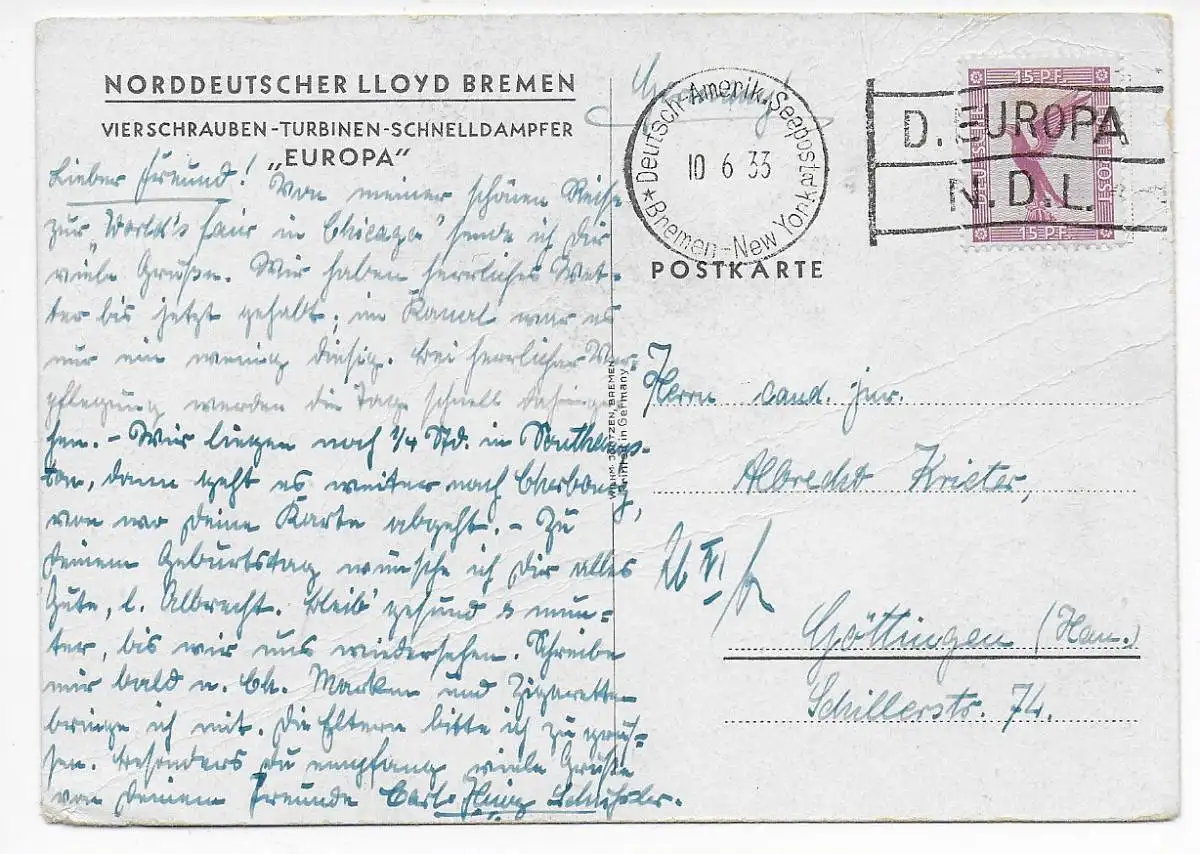 NORDDEUTSCHER LLOYD BREMEN
VIERSCHRAUBEN-TURBINEN-SCHNELLDAMPFER
„EUROPA"
Lieber Freund! Von meiner schönen Reise
zur „World's fair in Chicago" sende ich Dir
viele Grüße. Wir haben herrliches Wet-
ter bis jetzt gehabt; im Kanal war es
nur ein wenig diesig. Bei herrlicher Ver-
pflegung werden die Tage schnell dahinge-
hen. - Wir liegen noch 1/4 Std. in Southamp-
ton, dann geht es weiter nach Cherbourg,
von wo Deine Karte abgeht. - Zu
Deinem Geburtstag wünsche ich Dir alles
Gute, l. Albrecht. Bleib' gesund & mun-
ter, bis wir uns wiedersehen. Schreibe
mir bald n. Ch. Marken und Zigaretten
bringe ich mit. Die Eltern bitte ich zu grüs-
sen. Besonders Du empfang viele Grüße
von Deinem Freunde Carl-Heinz
Deutsch-Amerik. Seepost
10 6 33
Bremen-New York
D. EUROPA
N.D.L.
15 P.F.
DEUTSCHE
POST
15 P.F.
POSTKARTE
Printed in Germany
Herrn cand. jur.
Albrecht Krieter,
Göttingen (Han.)
Schillerstr. 74.